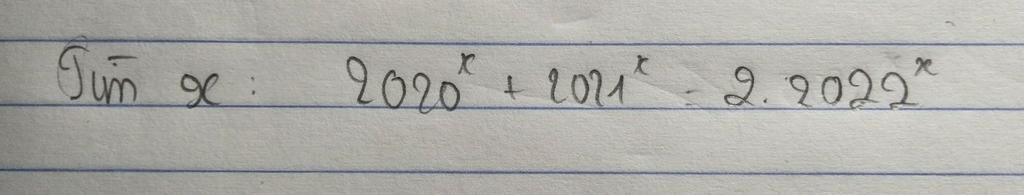 Tìm x: 2020^x + 2021^x = 2.2022^x